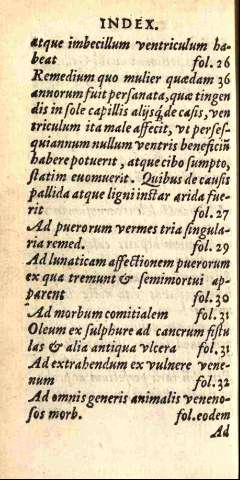 INDEX.
atque imbecillum ventriculum ha-
beat fol. 26
Remedium quo mulier quædam 36
annorum fuit persanata, quæ tingen
dis in sole capillis alijsq; de causis, ven
triculum ita male affecit, vt perses-
quiannum nullum ventris beneficiũ
habere potuerit, atque cibo sumpto,
statim euomuerit. Quibus de causis
pallida atque ligni instar arida fue-
rit fol. 27
Ad puerorum vermes tria singula-
ria remed. fol. 29
Ad lunaticam affectionem puerorum
ex qua tremunt & semimortui ap-
parent fol. 30
Ad morbum comitialem fol. 31
Oleum ex sulphure ad cancrum fistu
las & alia antiqua vlcera fol. 31
Ad extrahendum ex vulnere vene-
num fol. 32
Ad omnis generis animalis veneno-
sos morb. fol. eodem
Ad